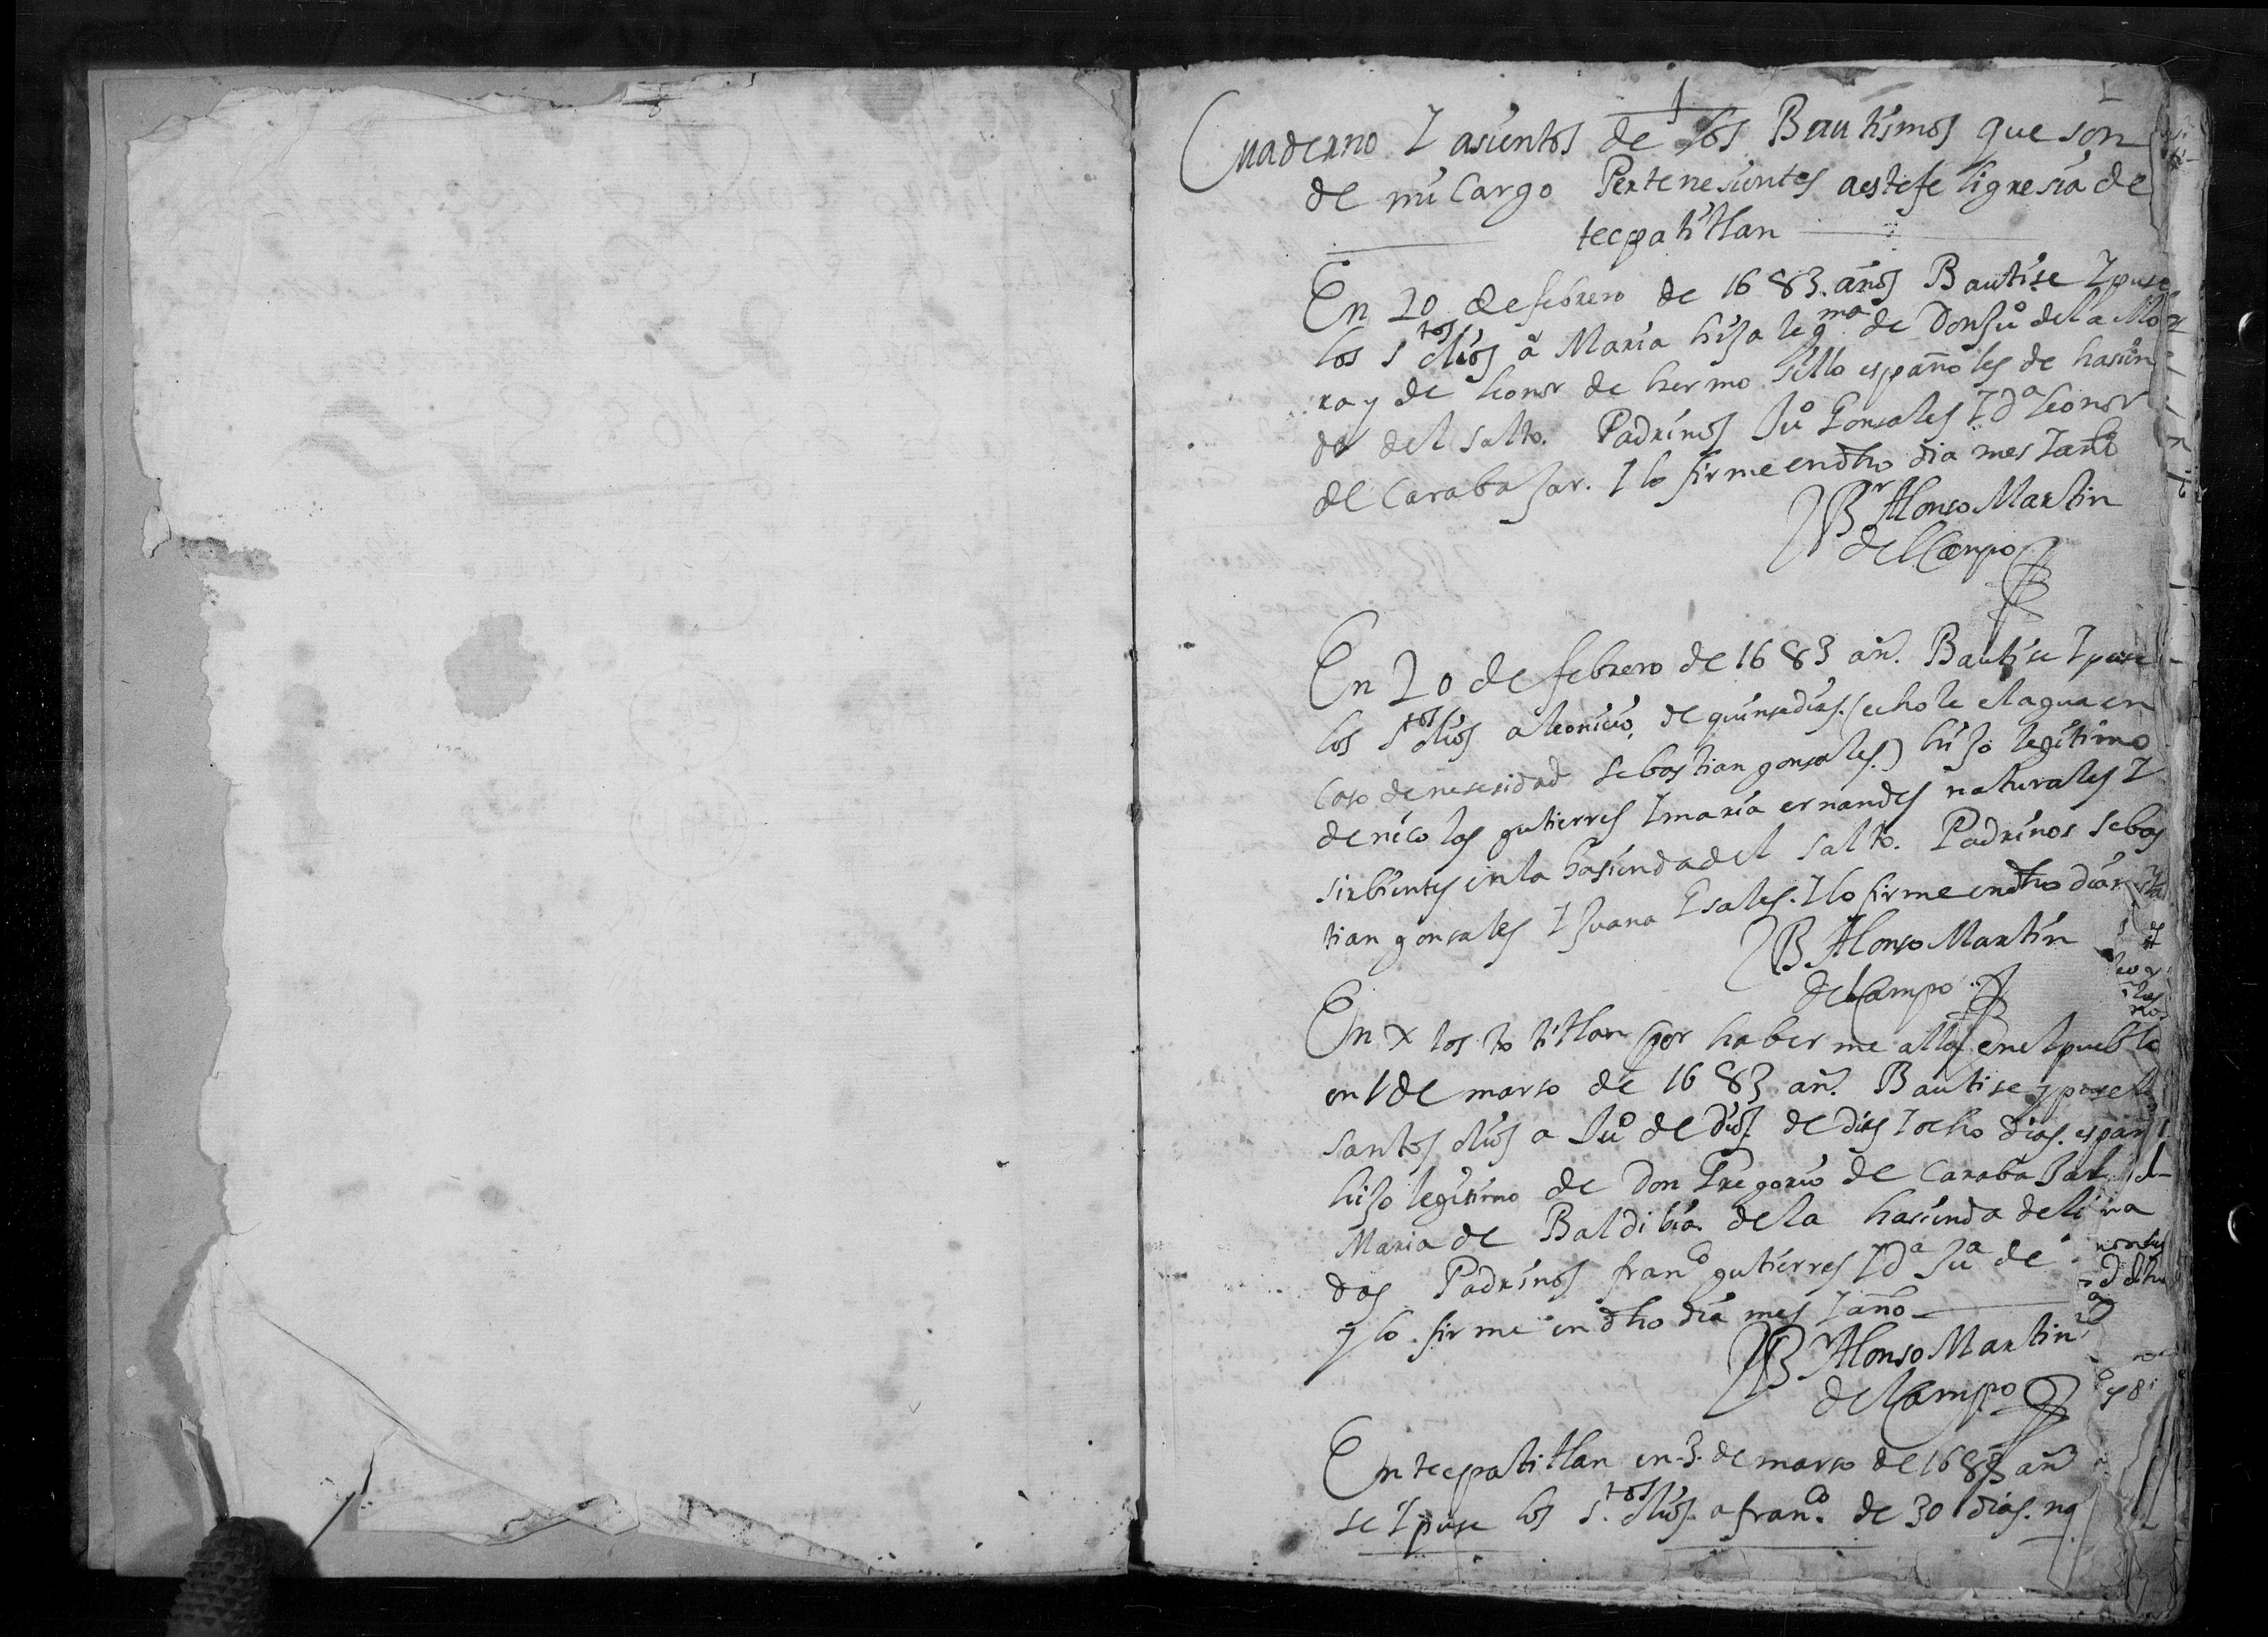 1
Cuaderno I asientos de los Bautismos que son
de mi cargo Pertenesientes a este feligresia de
tecpatitlan
En 20 de febrero de 1683. años Bautise I puse
los s.tos olios á Maria hija legma de Don Juº de la Mo
ra y de leonor de hermosillo españoles de hasien
da del salto. Padrinos Juº Gonsales I Da leonor
de Carabajar. I lo firme en dho dia mes I año
Br Alonso Martin
del Campo
En 20 de febrero de 1683 añ. Bautise I puse
los stos olios a leonicio, de quinse dias. (echole el agua en
caso de nesesidad sebastian gonsales.) hijo legitimo
de nicolas gutierres I maria ernandes naturales I
sirbientes en la hasienda del salto. Padrinos sebas
tian gonsales I Juana Gsales. I lo firme en dho dia
B. Alonso Martin
del Campo
En xlostotitlan por haberme alla en el pueblo
en 1 de marso de 1683 añ. Bautise y puse los
santos olios a Juº de Dios de dies I ocho dias. españ
hijo legitimo de Don Gregorio de Carabajal
Maria de Baldibia. de la hasienda de
das Padrinos franco gutierres I Da Jua de
y lo firme en dho dia mes I año
B Alonso Martin
del Campo
En tecpatitlan en 3. de marso de 1683 añ
se I puse los s.tos olios a franco. de 30 dias.